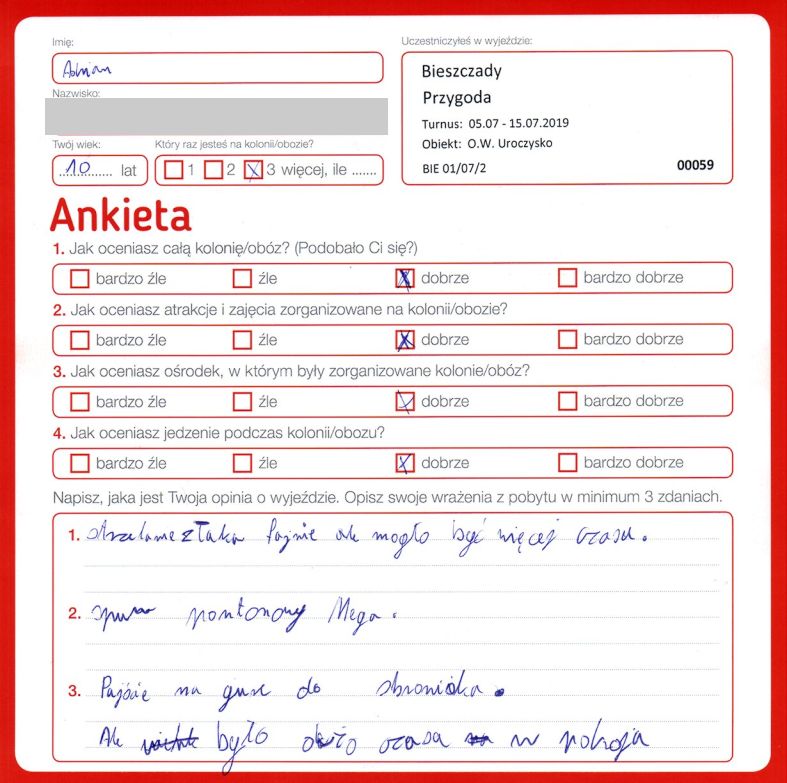 Imię:
Adrian
Nazwisko:
Twój wiek:
10 lat
Który raz jesteś na kolonii/obozie?
1 2 3 więcej, ile .......
Uczestniczyłeś w wyjeździe:
Bieszczady
Przygoda
Turnus: 05.07 - 15.07.2019
Obiekt: O.W. Uroczysko
BIE 01/07/2 00059
Ankieta
1. Jak oceniasz całą kolonię/obóz? (Podobało Ci się?)
bardzo źle źle dobrze bardzo dobrze
2. Jak oceniasz atrakcje i zajęcia zorganizowane na kolonii/obozie?
bardzo źle źle dobrze bardzo dobrze
3. Jak oceniasz ośrodek, w którym były zorganizowane kolonie/obóz?
bardzo źle źle dobrze bardzo dobrze
4. Jak oceniasz jedzenie podczas kolonii/obozu?
bardzo źle źle dobrze bardzo dobrze
Napisz, jaka jest Twoja opinia o wyjeździe. Opisz swoje wrażenia z pobytu w minimum 3 zdaniach.
1. fajnie ale mogło być więcej czasu.
2. pontonowy Mega.
3. na do
Ale było czasa w pokoja